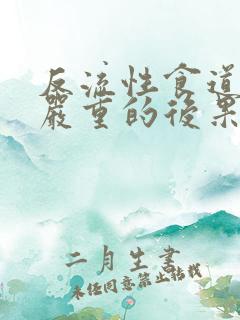 反流性食道
嚴重的後果
二月生書
未经同意禁止转载